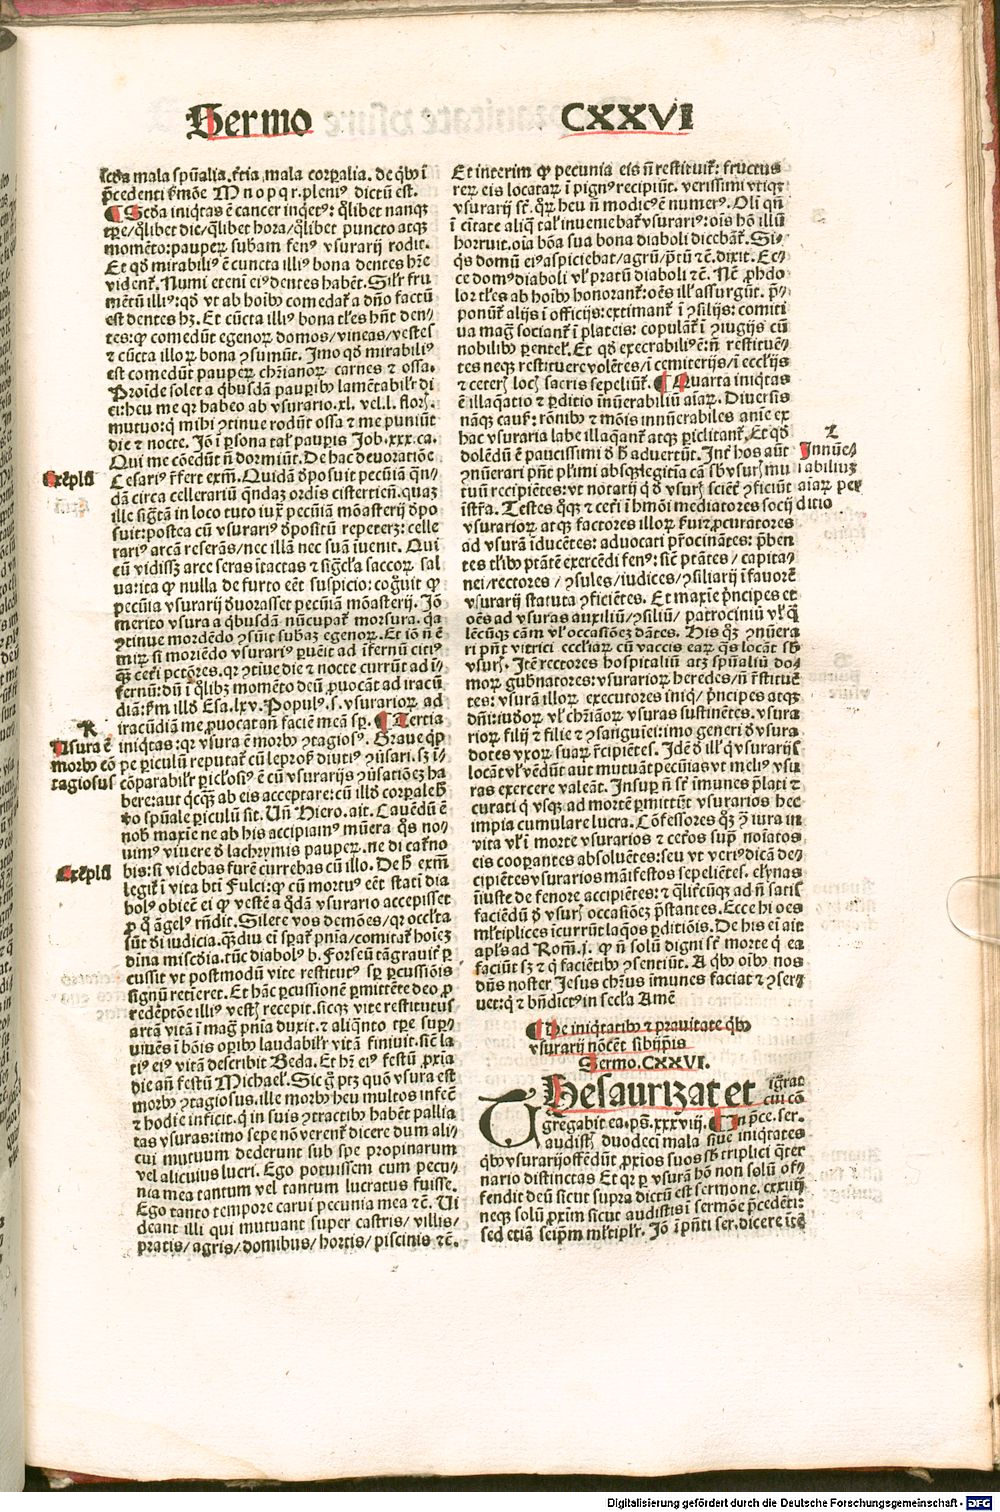 Sermo CXXVI
scḋa mala spūalia. t̄tia mala corꝑalia. de qͥbꝰ ī
p̄cedenti s̄mōe M n o p q r. pleniꝰ dictū est.
¶ Scḋa iniqͥtas ē cancer inqͥetꝰ: qͥlibet nanqꝫ
tꝑe/qͥlibet die/qͥlibet hora/qͥlibet puncto atqꝫ
momēto: pauperꝝ subam fenꝰ vsurarij rodit.
Et qḋ mirabiliꝰ ē cuncta illiꝰ bona dentes hr̄e
vident᷑. Numi etenī eiꝰ dentes habēt. Silr̄ fru
mētū illiꝰ: qḋ vt ab hoībꝰ comedat᷑ a dn̄o factū
est dentes hꝫ. Et cūcta illiꝰ bona tl̄es hn̄t den/
tes: qͥ comedūt egenoꝝ domos/vineas/vestes
⁊ cūcta illoꝝ bona ꝯsumūt. Imo qḋ mirabiliꝰ
est comedūt pauperꝝ chr̄ianoꝝ carnes ⁊ ossa.
Proīde solet a qͥbusdā pauꝑibꝰ lamētabilr̄ di
ci: heu me qꝛ habeo ab vsurario .xl. vel .l. florꝭ.
mutuo: qͥ mihi ꝯtinue rodūt ossa ⁊ me puniūt
die ⁊ nocte. Iō ī ꝑsona tal̓ pauꝑis Job .xxx. ca.
Qui me cōedūt n̄ dormiūt. De hac deuoratiōe
Cesariꝰ r̄fert exm̄. Quidā ḋposuit pecūiā qn̄-
dā circa cellerariū qͥndaꝫ ordīs cistercieñ. quaꝫ
ille sigͣtā in loco tuto iuxͣ pecūiā mōasterij ḋpo
suit: postea cū vsurariꝰ ḋpositū repeteꝛꝫ: celle
rariꝰ arcā reserās/nec illā nec suā īuenit. Qui
cū vidissꝫ arce seras ītactas ⁊ sigͥlla saccoꝝ sal
ua: ita ꝙ nulla de furto eēt suspicio: cogͦuit ꝙ
pecūia vsurarij ḋuorasset pecūiā mōasterij. Iō
merito vsura a qͥbusdā nūcupat᷑ morsura. qꝛ
ꝯtinue mordēdo ꝯsūit subaꝫ egenoꝝ. Et iō n̄ ē
mirꝝ si moriēdo vsurariꝰ ꝑueīt ad īfernū citiꝰ
qͣꝫ cet̓i pctōres. qꝛ ꝯtīue die ⁊ nocte currūt ad ī-
fernū: dū ī qͥlibꝫ momēto deū ꝓuocāt ad iracū
diā: s̄m illḋ Esa. lxv. Populꝰ .s. vsurarioꝝ ad
iracūdiā me ꝓuocat an̄ faciē meā sꝑ. ¶ Tertia
iniqͥtas: qꝛ vsura ē morbꝰ ꝯtagiosꝰ. Graue qͥꝑ
pe ꝑiculū reputat᷑ cū leprosꝭ diutiꝰ ꝯūsari. sꝫ ī-
cōparabilr̄ ꝑicl̓osiꝰ ē cū vsurarijs ꝯūsatiōeꝫ ha
bere: aut qͥcqͣꝫ ab eis acceptare: cū illḋ corꝑale hͦ
ṽo spūale ꝑiculū sit. Vn̄ Hiero. ait. Cauēdū ē
nobꝭ maxīe ne ab his accipiamꝰ mūera qͦs no-
uimꝰ viuere ḋ lachrymis pauperꝝ. ne di caťno
bis: si videbas furē currebas cū illo. De hͦ exm̄
legit᷑ ī vita bt̄i Fulci: ꝙ cū mortuꝰ eēt statī dia
bolꝰ obiicē ei ꝙ vestē a qͥdā vsurario accepisset
ꝓ qͦ āgelꝰ rn̄dit. Silete vos demōes/qꝛ occl̓ta
sūt dī iudicia. qͣꝫdiu eī sꝑat᷑ pn̄ia/comitat᷑ hoīeꝫ
dīna miscd̓ia. tūc diabolꝰ hꝭ. Forseū tāgrauit᷑ ꝑ
cussit vt postmodū vite restitutꝰ sꝑ ꝑcussiōis
signū retieret. Et hāc ꝑcussionē ꝑmittēte deo ꝓ
redēptōe illiꝰ vestꝭ recepit. sicqꝫ vite restitutus
artā vitā ī magͣ pn̄ia duxit. ⁊ aliqͣnto tꝑe suꝑ-
viuēs ī bōis oꝑibꝰ laudabilr̄ vitā finiuit. sic̄ la
tiꝰ eiꝰ vitā describit Beda. Et hꝫ eiꝰ festū ꝓxīa
die an̄ festū Michael̓. Sic gͦ ptꝫ quō vsura est
morbꝰ ꝯtagiosus. ille morbꝰ heu multos infecē
⁊ hodie inficit. qͥ in suis ꝯtractibꝰ habēt pallia
tas vsuras: imo sepe nō verent᷑ dicere dum ali/
cui mutuum dederunt sub spe propinarum
vel alicuius lucri. Ego potuissem cum pecu/
nia mea tantum vel tantum lucratus fuisse.
Ego tanto tempore carui pecunia mea ⁊c̄. Vi
deant illi qui mutuant super castris/villis/
pratis/agris/domibus/hortis/piscinis ⁊c̄.
Exēplū
K
Usura ē
morbꝰ cō
tagiosus
Exēplū
Et interim ꝙ pecunia eis n̄ restituit᷑: fructus
reꝝ eis locataꝝ ī pignꝰ recipiūt. verissimi vtiqꝫ
vsurarij st̄. qͦrꝝ heu n̄ modicꝰ ē numerꝰ. Olī qn̄
ī cītate aliqͣ tal̓ inueniebat᷑ vsurariꝰ: oīs hō illū
horruit. oīa bōa sua bona diaboli dicebāt᷑. Si-
qͥs domū eiꝰ aspiciebat/agrū/pr̄tū ⁊c̄. dixit. Ec-
ce domꝰ diaboli vl̓ pratū diaboli ⁊c̄. Nūc ꝓhdo
lor tl̓es ab hoībꝰ honorant᷑: oēs ill̓ assurgūt. p̄-
ponūt᷑ alijs ī officijs: extimant᷑ ī ꝯsilijs: comiti
ua magͣ sociant᷑ ī plateis: copulāt᷑ ī ꝯiugijs cū
nobilibꝰ parentel̓. Et qḋ execrabiliꝰ ē: n̄ restituē-
tes neqꝫ restituere volētes/ī cemiterijs/ī eccl̓ijs
⁊ ceterꝭ locꝭ sacris sepeliūt᷑. ¶ Quarta iniqͥtas
ē illaqͣatio ⁊ ꝑditio īnūerabiliū aīaꝝ. Diuersis
nāqꝫ causꝭ: rōnibꝰ ⁊ mōis innūerabiles anīe ex
hac vsuraria labe illaqͣant᷑ atqꝫ ꝑiclitant᷑. Et qḋ
dolēdū ē paucissimi ḋ hͦ aduertūt. Int̓ hos aūt
ꝯnūerari pn̄t pl̓imi absqꝫ legitīa cā sbͦ vsurꝭ mu
tuū recipiētes: vt notarij qͥ ḋ vsurꝭ scīēt᷑ ꝯficiūt
īstr̄a. Testes qͦqꝫ ⁊ cet̓i ī hm̄ōi mediatores socij
vsurarioꝝ atqꝫ factores illoꝝ s̄uit᷑ ꝓcuratores
ad vsurā īducētes: aduocati pr̄ocināntes: p̄ben
tes tl̓ibꝰ ptātē exercēdi fenꝰ: sic̄ ptātes/capita-
nei/rectores/ꝯsules/iudices/ꝯsiliarij ī fauorē
vsurarij statuta ꝯficiētes. Et maxīe p̄ncipes et
oēs ad vsuras auxiliū/ꝯsiliū/patrociniū vl̓ qͣ
lēcūqꝫ cām vl̓ occasiōeꝫ dātes. His qͦꝫ ꝯnūera
ri pn̄t vitrici eccl̓iaꝝ cū vaccis eaꝝ qͣs locāt sbͦ
vsurꝭ. Itē rectores hospitaliū atqꝫ spūaliū do-
moꝝ gub̓natores: vsurarioꝝ heredes/n̄ r̄stituē
tes: vsurā illoꝝ executores iniqͥ/p̄ncipes atqꝫ
dn̄i: iud̓oꝝ vl̓ chr̄ianoꝝ vsuras sustinētes. vsura
rioꝝ filij ⁊ filie ⁊ ꝯsanguīei: imo generi ḋ vsura
dotes vxoꝝ suaꝝ r̄cipiētes. Idē ḋ ill̓ qͥ vsurarijs
locāt vl̓ vēdūt aut mutuāt pecūias vt meliꝰ vsu
ras exercere valeāt. Insuꝑ n̄ st̄ imunes p̄lati ⁊
curati qͥ vsqꝫ ad mortē ꝑmittūt vsurarios hec
impia cumulare lucra. Cōfessores qͦꝫ ꝯ iura in
vita vl̓ ī morte vsurarios ⁊ cet̓os supͣ noīatos
eis cooꝑantes absoluētes: seu vt veriꝰ dicā de-
cipiētes vsurarios māifestos sepeliētes. el̓ynas
īiuste de fenore accipiētes: ⁊ qͣlit̓cūqꝫ ad n̄ satiſ
faciēdū ḋ vsurꝭ occasiōeꝫ p̄stantes. Ecce hi oēs
ml̓tiplices īcurrūt laqͦos ꝑditiōis. De his eī ait
apl̓s ad Rom̄. j. ꝙ n̄ solū digni st̄ morte qͥ ea
faciūt sꝫ ⁊ qͥ faciētibꝰ ꝯsentiūt. A qͥbꝰ oībꝰ nos
dn̄s noster Jesus chr̄us imunes faciat ⁊ ꝯser
uet: qͥ ē bn̄dictꝰ in secl̓a Amē
L
Innūe-
rabiliuꝫ
aiaꝝ per
ditio
¶ De iniqͥtatibꝰ ⁊ prauitate qͥbꝰ
vsurarij nōcēt sibijpsis
Sermo. CXXVI.
Thesaurizat et igͣrat cui cō
gregabit ea. ps. xxxviij. ¶ In p̄ce. ser.
audistꝭ duodecī mala siue iniqͥtates
qͥbꝰ vsurarij offēdūt ꝓxīos suos sbͦ triplici qͣter
nario distinctas Et qꝛ ꝑ vsurā hō non solū of-
fendit deū sicut supra dictū est sermone. cxxiiij
neqꝫ solū ꝓxim̄ sicut audistis ī sermōe p̄cedēti:
sed etiā seip̄m ml̓tiplr̄. Iō ī p̄nti ser. dicere ītēd
Digitalisierung gefördert durch die Deutsche Forschungsgemeinschaft - DFG